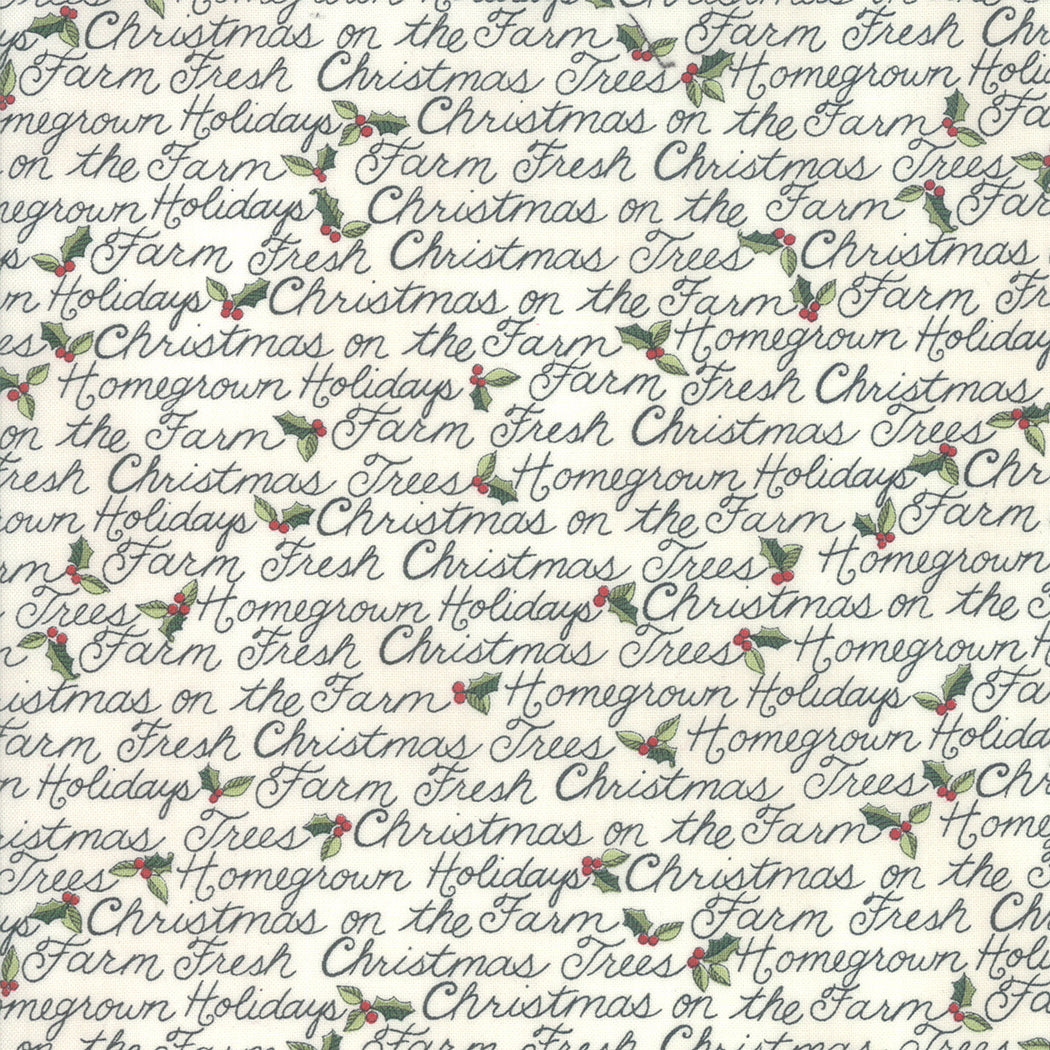 Homegrown Holidays Christmas on the
Christmas on the Farm Farm Fresh
Farm Fresh Christmas Trees Homegrown
Holidays Christmas on the Farm
on the Farm Farm Fresh Christmas Trees
Holidays Christmas on the Farm
Farm Fresh Christmas Trees Christmas
Holidays Christmas on the Farm Farm
Christmas on the Farm Homegrown Holidays
Homegrown Holidays Farm Fresh Christmas
on the Farm Farm Fresh Christmas Trees
Fresh Christmas Trees Homegrown Holidays
Holidays Christmas on the Farm Farm
Farm Fresh Christmas Trees Homegrown
Trees Homegrown Holidays Christmas on the
Farm Fresh Christmas Trees Homegrown
on the Farm Homegrown Holidays
Farm Fresh Christmas Trees Homegrown
Holidays Farm Fresh Christmas Trees
Trees Christmas on the Farm
Trees Homegrown Holidays Christmas on the
Christmas on the Farm Farm Fresh
Farm Fresh Christmas Trees Homegrown
Holidays Christmas on the Farm
on the Farm Farm Fresh Christmas Trees